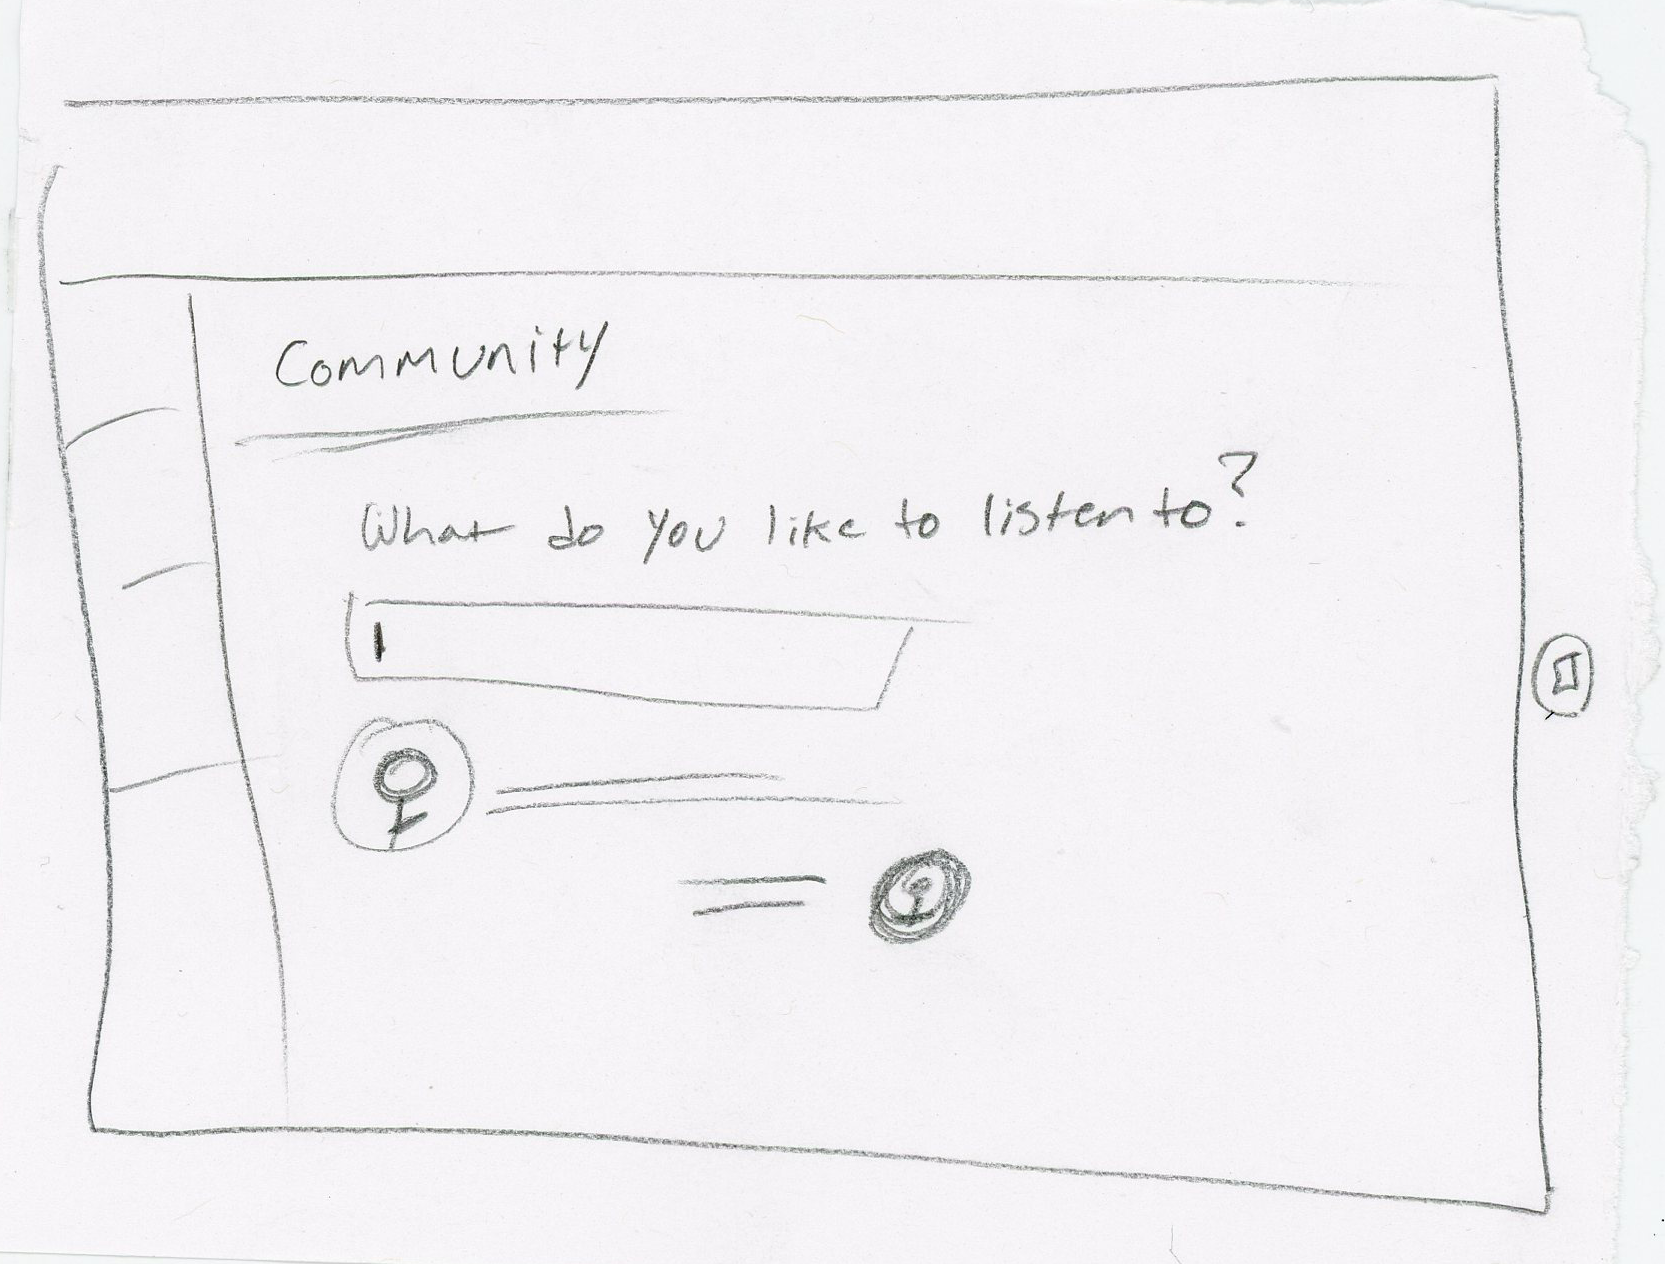 Community
What do you like to listen to?